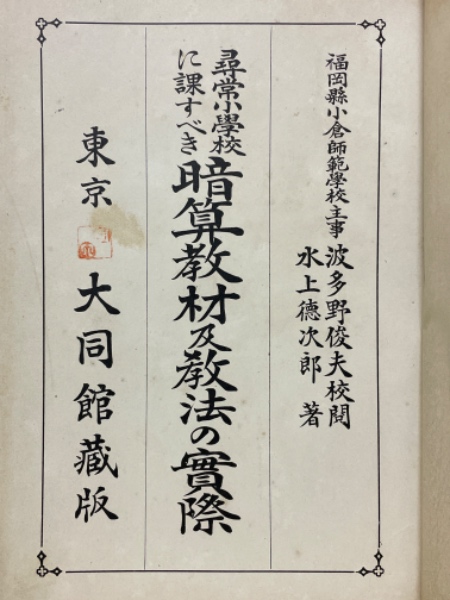 福岡縣小倉師範學校主事 波多野俊夫校閲
水上德次郎 著
尋常小學校
に課すべき
暗算教材及教法の實際
東京 大同館藏版